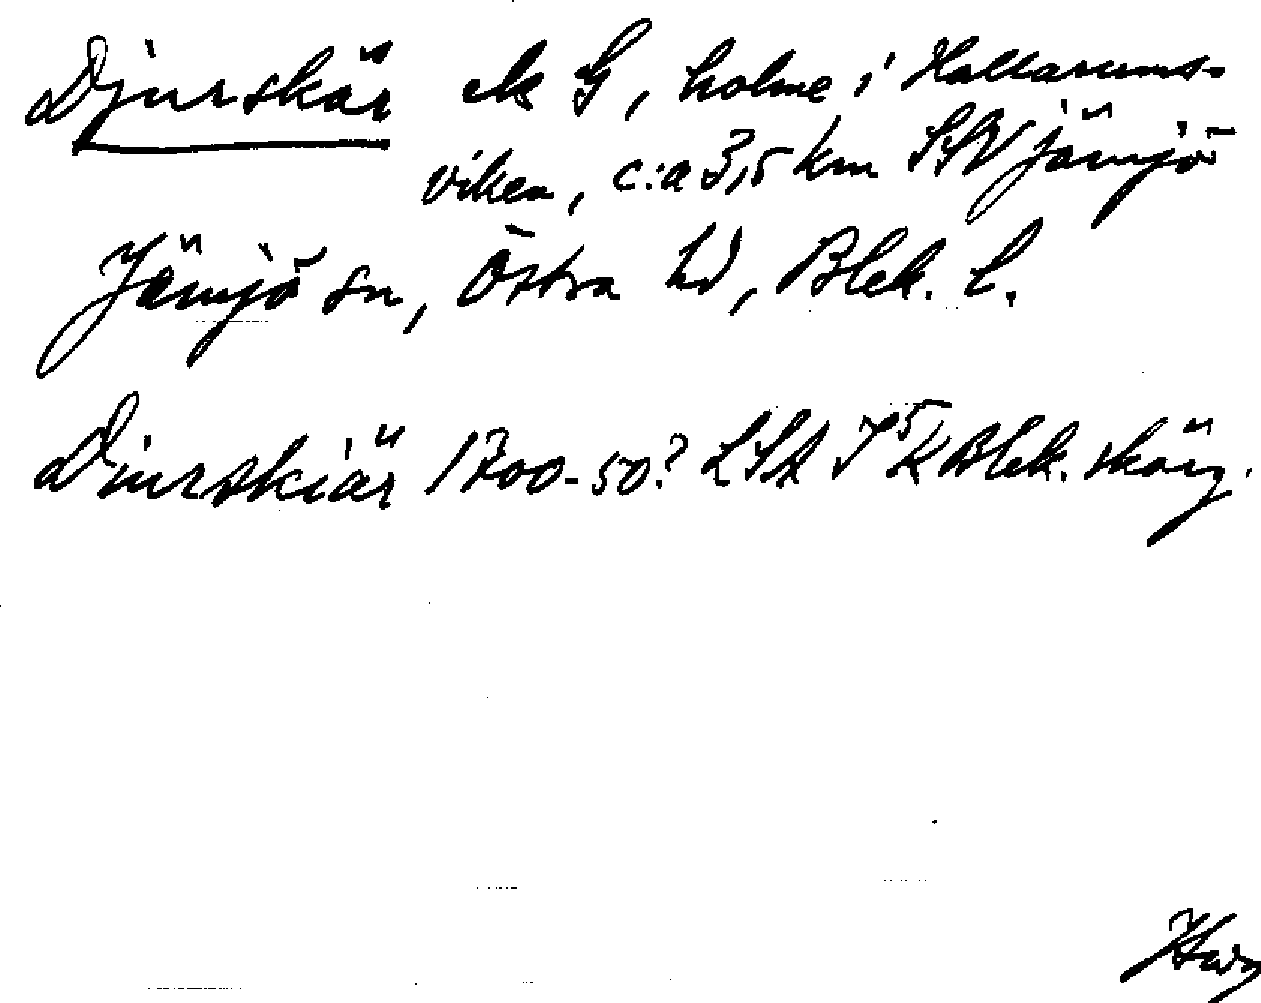 Djurskär ek G, holme i Hallarums-
viken, c:a 3,5 km SSV Jämjö
Jämjö sn, Östra hd, Blek. l.
Diurskiär 1700-50? LSA Blek. skärg.